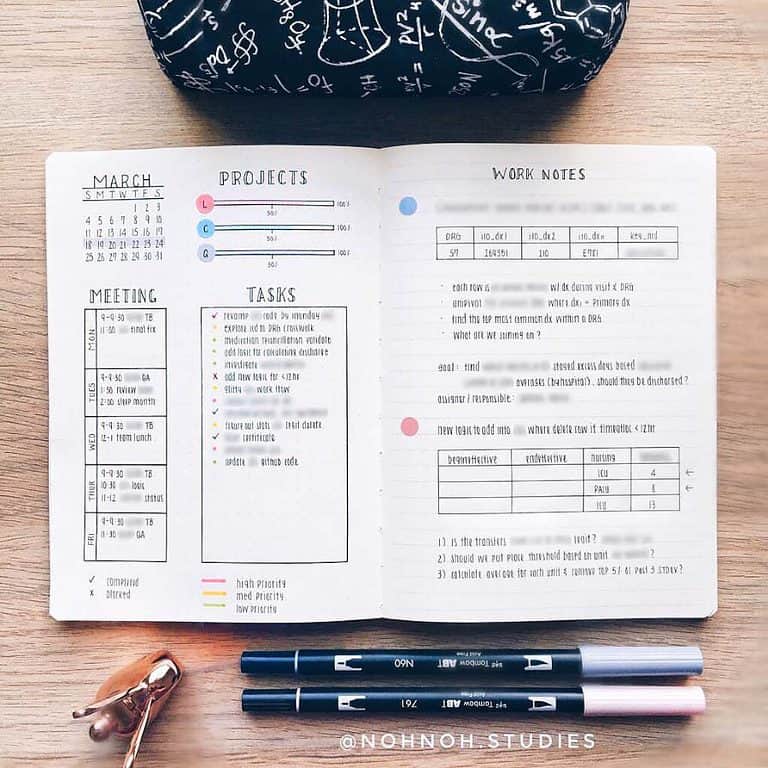 MARCH
S M T W T F S
1 2 3
4 5 6 7 8 9 10
11 12 13 14 15 16 17
18 19 20 21 22 23 24
25 26 27 28 29 30 31
PROJECTS
L 50% 100%
C 50% 100%
Q 50% 100%
MEETING
MON
9-9:30 TB
11:00 final fix
TUES
9-9:30 GA
1:30 review
2:00 sleep month
WED
9-9:30
12-1 team lunch
THUR
9-9:30 TB
10:30 logic
11-12 status
FRI
9-9:30 TB
11-30 GA
✓ completed
x blocked
TASKS
✓ revamp code by monday
explore icd to DRG crosswalk
medication reconciliation validate
add logic for calculating discharge
investigate
x add new logic for <12hr
work flow
✓
figure out slots start date
✓ certificate
update github code
high priority
med priority
low priority
WORK NOTES
DRG i10_dx1 i10_dx2 i10_dxn key_md
57 I10 E781
· each row is w/ dx during visit & DRG
· unpivot where dx1 = primary dx
· find the top most common dx within a DRG
· what are we joining on?
goal: find stayed excess days based
averages (by hospital). should they be discharged?
assigner / responsible:
new logic to add into where delete row if timration < 12hr
begineffective endeffective nursing
ICU 4 ←
PACU 8 ←
ICU 13
1) is the transfers unit?
2) should we put place threshold based on unit ?
3) calculate average for each unit & remove top 5% or past 3 stdev?
N60 Tombow ABT Acid Free
761 Tombow ABT Acid Free
@NOHNOH.STUDIES